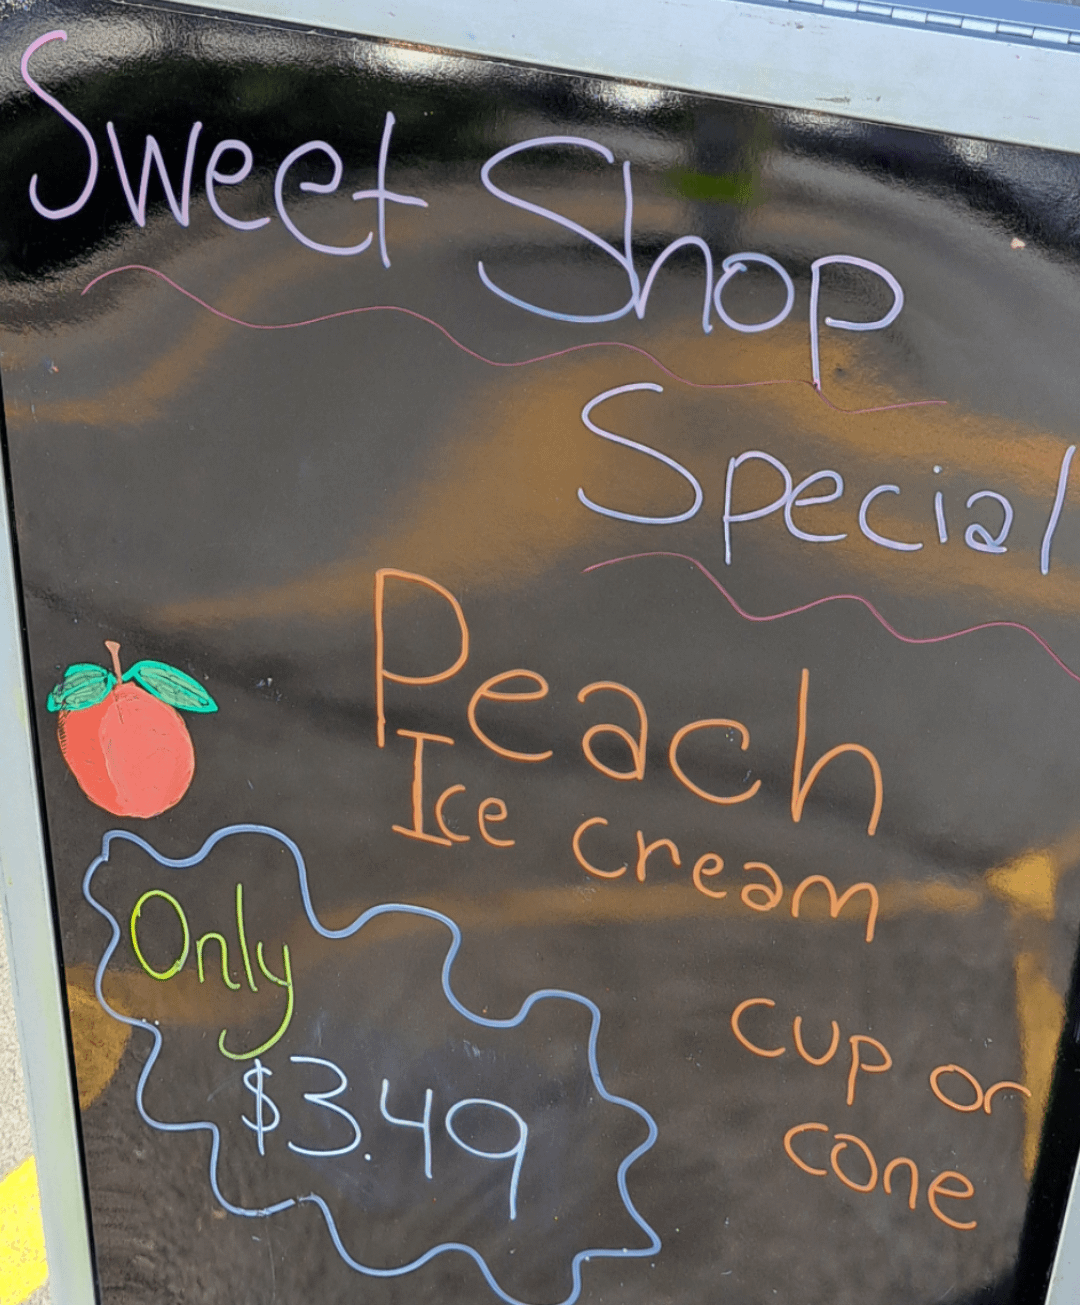 Sweet Shop
Special
Peach
Ice cream
Only
$3.49
cup or
cone